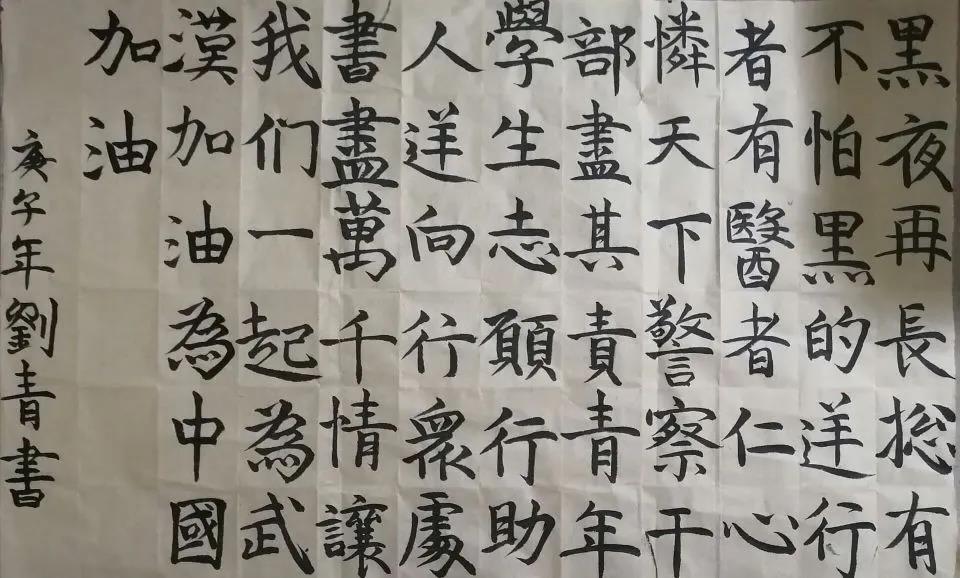 黑夜再長捴有
不怕黑的逆行
者有醫者仁心
憐天下警察干
部盡其責青年
學生志願行助
人逆向行眾處
書盡萬千情讓
我们一起為武
漢加油為中國
加油
庚子年劉青書